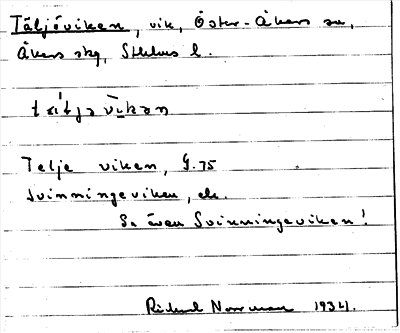 Täljöviken, vik, Öster-Åkers sn,
Åkers skg, Sthlms l.
Telje viken, G. 75
Svinningeviken, ek.
Se även Svinningeviken!
Rickard Norrman 1934.